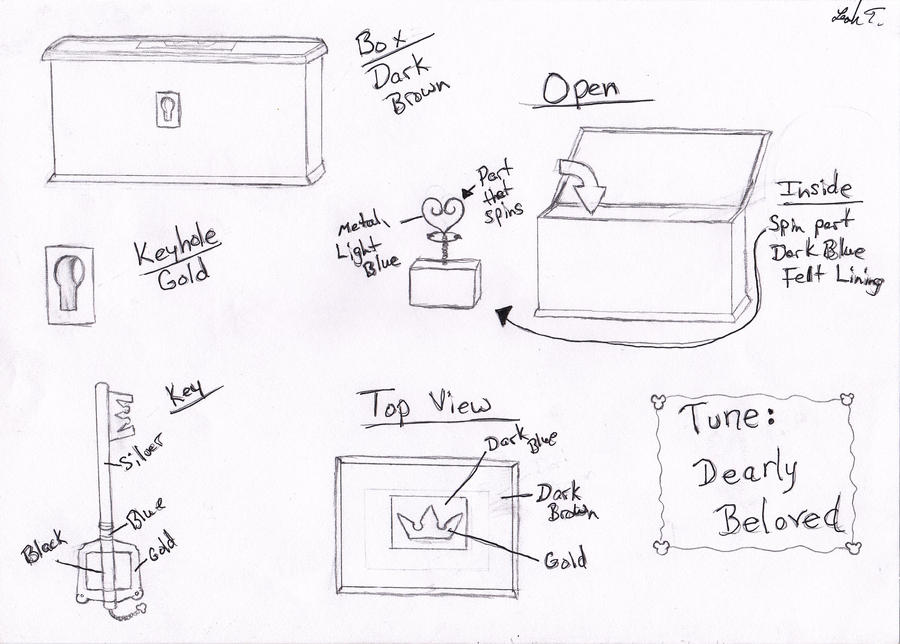 Leah T.
Box
Dark
Brown
Open
Part
that
spins
Metal,
Light
Blue
Inside
Spin part
Dark Blue
Felt Lining
Keyhole
Gold
Key
Silver
Blue
Black
Gold
Top View
Dark Blue
Dark
Brown
Gold
Tune:
Dearly
Beloved